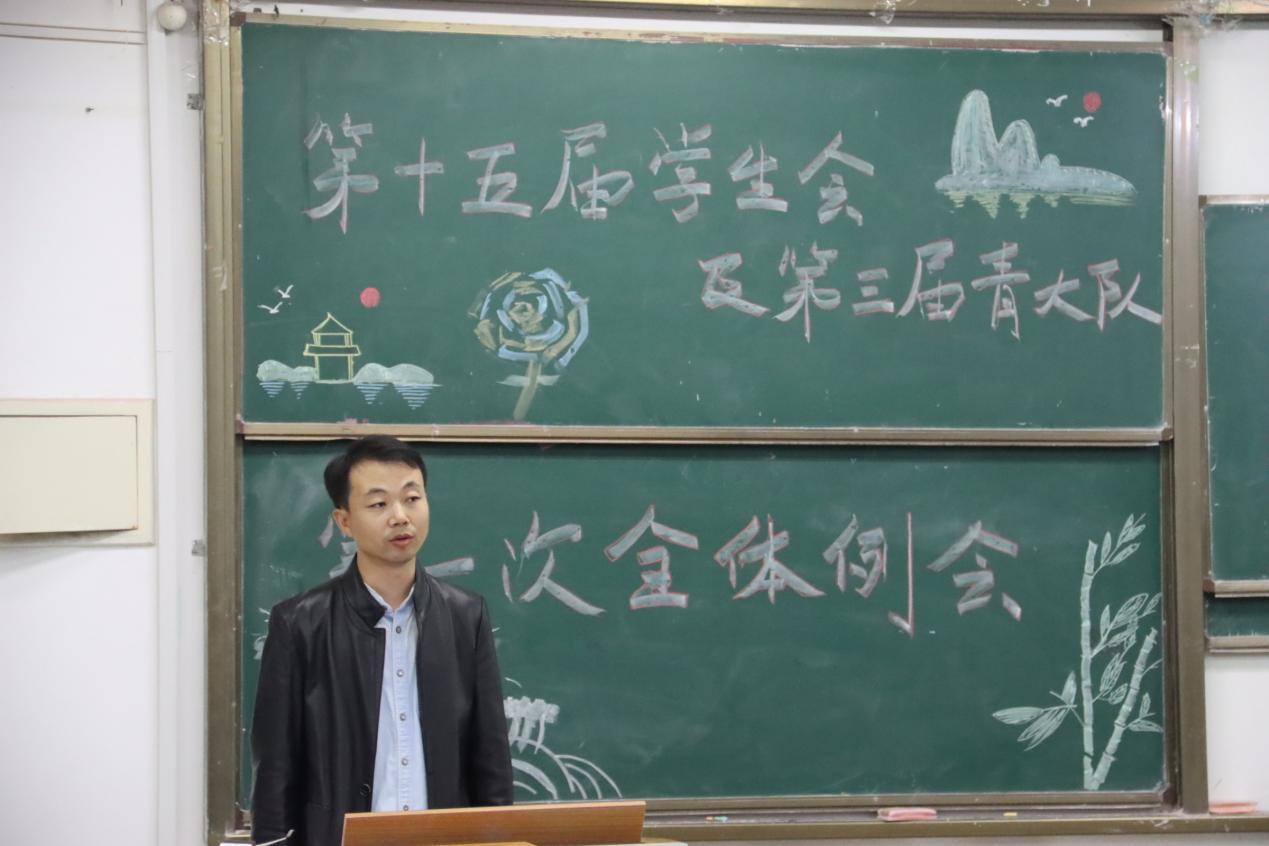 第十五届学生会
及第三届青大队
第一次全体例会